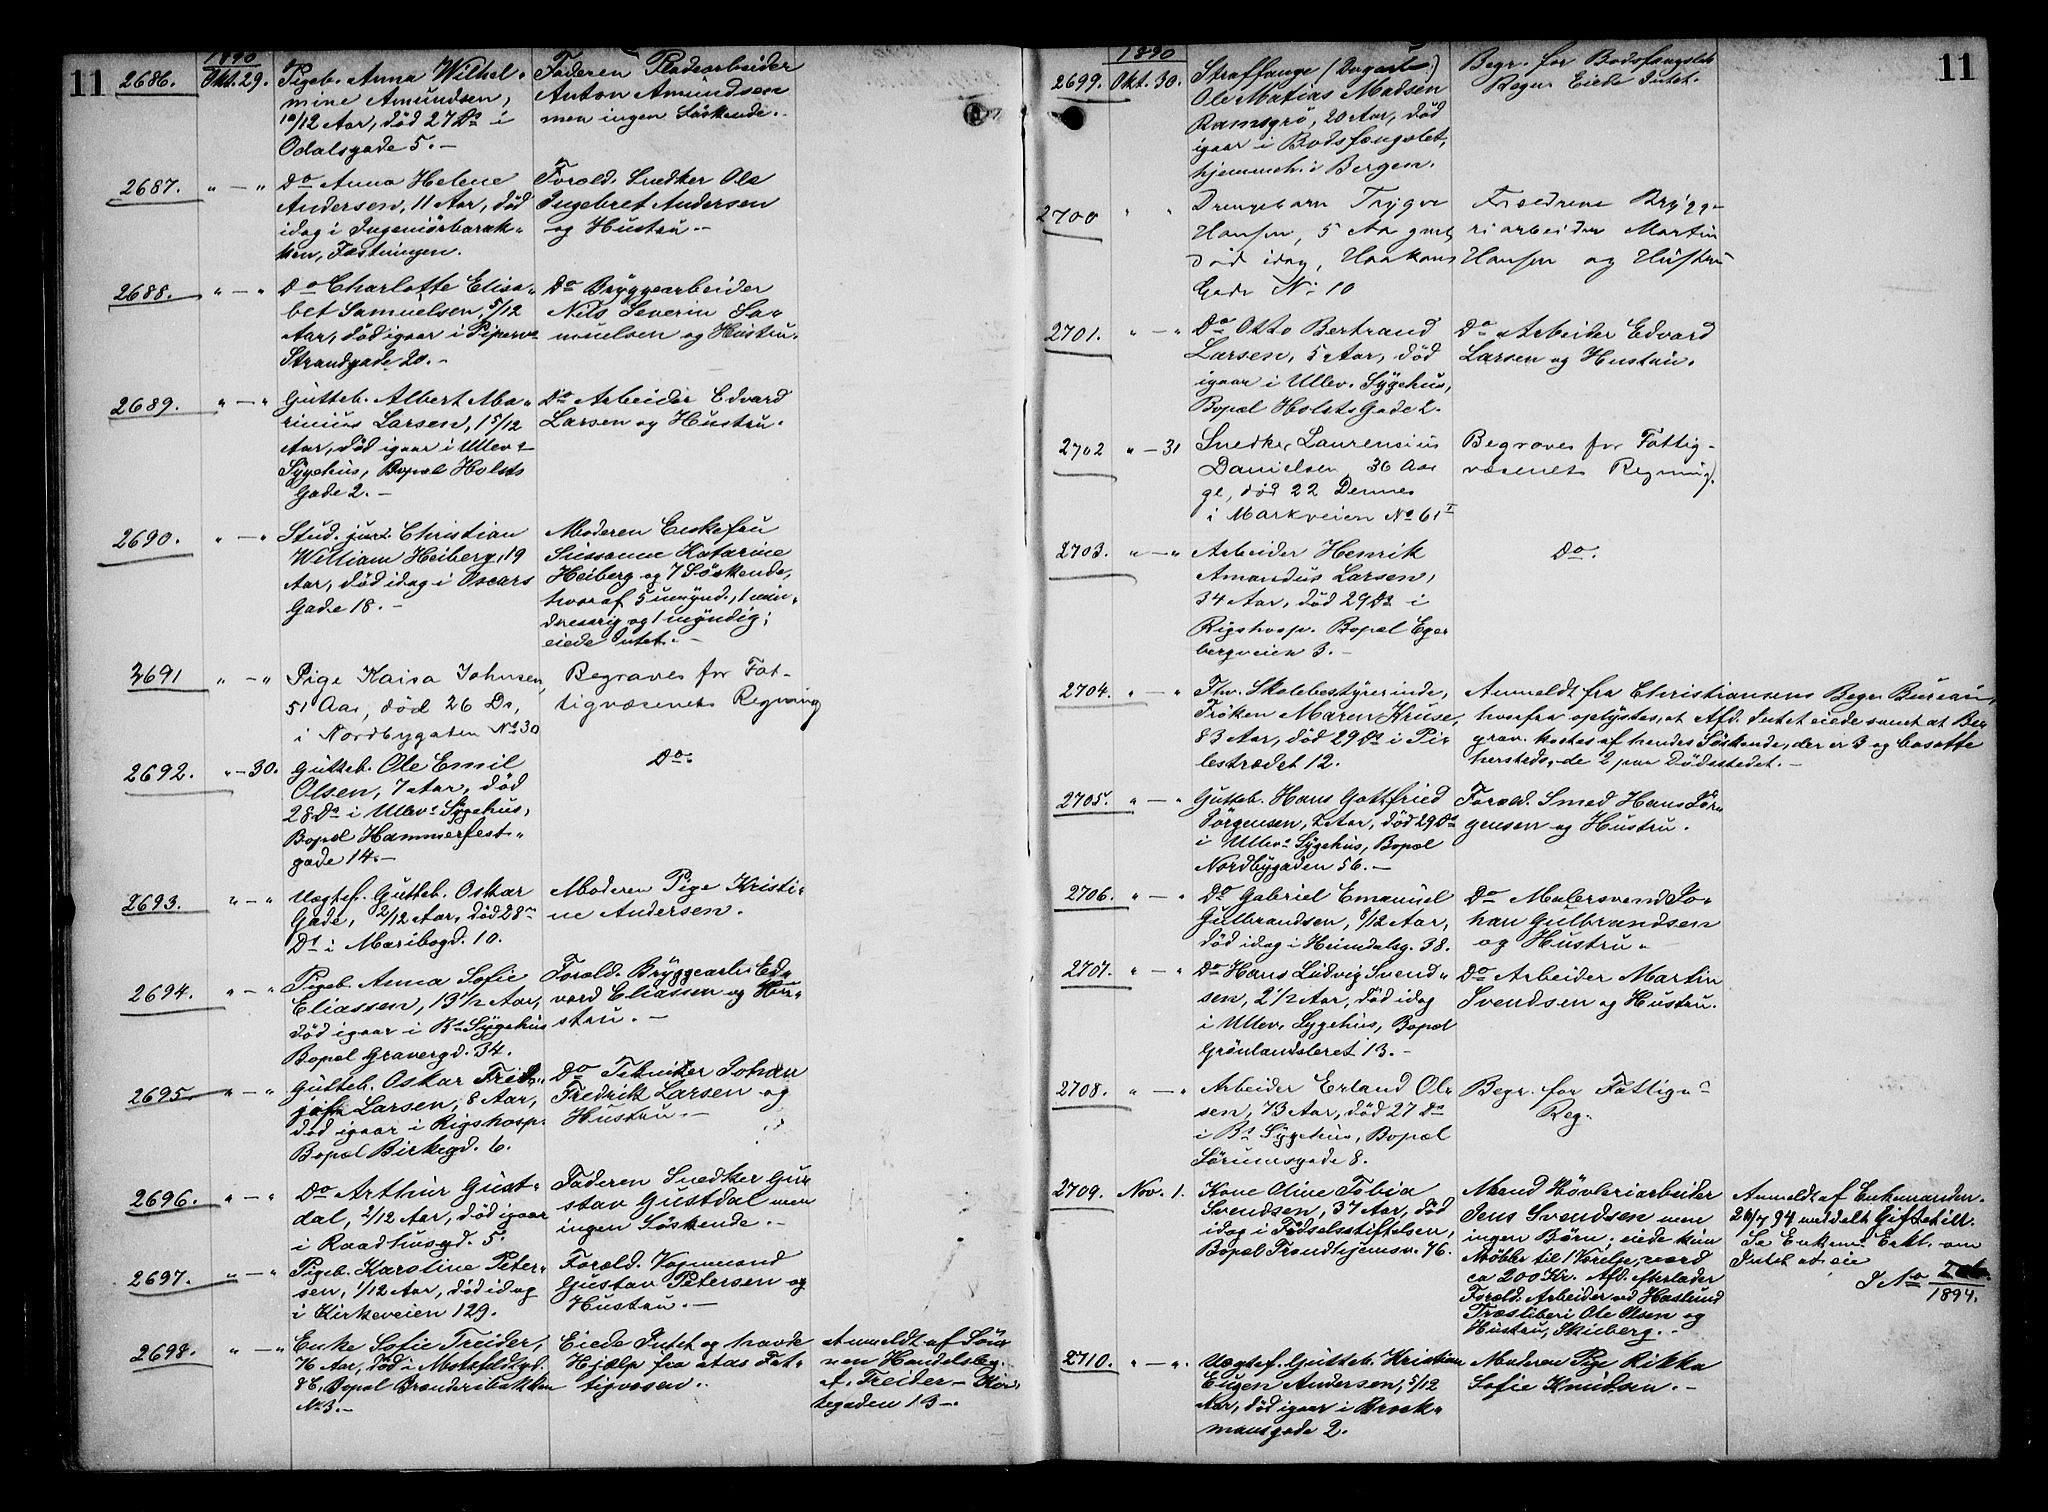 11
1890
2686. Okt. 29. Pigeb. Anna Wilhel-
mine Amundsen,
10/12 Aar, död 27 Ds i
Odalsgade 5. —
Faderen Pladsarbeider
Anton Amundsen
men ingen Söskende.
2687. " — " Do Anna Helene
Andersen, 11 Aar, död
idag i Ingeniörbarak-
ken, Fæstningen.
Foræld. Snedker Ole
Ingebret Andersen
og Hustru. —
2688. " — " Do Charlotte Elisa-
bet Samuelsen, 5/12
Aar, död igaar i Piperv.
Strandgade 20. —
Do Bryggearbeider
Nils Severin Sa-
muelsen og Hustru.
2689. " — " Gutteb. Albert Ma-
rinius Larsen, 1 5/12
Aar, död igaar i Ullev.
Sygehus, Bopæl Holsts
Gade 2. —
Do Arbeider Edvard
Larsen og Hustru.
2690. " — " Stud. jur. Christian
William Heiberg, 19
Aar, död idag i Oscars
Gade 18. —
Moderen Enkefru
Susanne Katarine
Heiberg og 7 Söskende,
hvoraf 5 umynd., 1 min-
dreaarig og 1 myndig;
eiede Intet. —
2691 " — " Pige Kaisa Johnsen,
51 Aar, död 26 Ds,
i Nordbygaten No 30
Begraves for Fat-
tigvæsenets Regning
2692. " — 30. Gutteb. Ole Emil
Olsen, 7 Aar, död
28 Ds i Ullevs Sygehus,
Bopæl Hammerfest-
gade 14. —
Do.
2693. " — " Uægtef. Gutteb. Oskar
Gade, 2/12 Aar, död 28
Ds i Maribogd. 10.
Moderen Pige Kristi-
ne Andersen.
2694. " — " Pigeb. Anna Sofie
Eliassen, 13 1/2 Aar,
död igaar i Bs Sygehus
Bopæl Gravergd. 34.
Foræld. Bryggearb. Ed-
vard Eliassen og Hu-
stru. —
2695. " — " Gutteb. Oskar Frid-
jof Larsen, 8 Aar,
död igaar i Rigshosp.
Bopæl Birkegd. 6.
Do Tekniker Johan
Fredrik Larsen og
Hustru. —
2696. " — " Do Arthur Gust-
dal, 2/12 Aar, död igaar
i Raadhusgd. 5.
Faderen Snedker Gu-
stav Gustdal men
ingen Söskende. —
2697. " — " Pigeb. Karoline Peter-
sen, 1/12 Aar, död idag
i Kirkeveien 129.
Foræld. Vognmand
Gustav Petersen og
Hustru. —
2698. " — " Enke Sofie Treider,
76 Aar, död i Motzfeldtgd.
Bopæl Brænderibakken
No 3. —
Eiede Intet og havde
Hjælp fra Aas Fat-
tigvæsen.
Anmeldt af Sön-
nen Handelsbg.
Treider —
tegaden 13 —.
11
1890
2699. Okt. 30. Straffange
Ole Matias Madsen
Ramsgrö, 20 Aar, död
igaar i Bodsfængslet,
hjemmeh. i Bergen.
Begr. for Bodsfængslets
Regn. Eiede Intet.
2700 " " Drengebarn Trygve
Hansen, 5 Aa gml,
död idag, Haakons
Gade No 10
Forældrene Brygge-
riarbeider Martin
Hansen og Hustru
2701. " — " Do Otto Bertrand
Larsen, 5 Aar, död
igaar i Ullev. Sygehus,
Bopæl Holsts Gade 2.
Do Arbeider Edvard
Larsen og Hustru.
2702 " — 31 Snedker Laurensius
Danielsen 36 Aar
gl, död 22 Dennes
i Markveien No 61 I
Begraves for Fattig-
væsenets Regning.
2703. " — " Arbeider Henrik
Amandus Larsen,
34 Aar, död 29 Ds i
Rigshosp. Bopæl Eger
bergveien 3. —
Do.
2704. " — " Fhv. Skolebestyrerinde,
Fröken Maren Kruse,
83 Aar, död 29 Ds i Pi-
lestrædet 12.
Anmeldt fra Christiansens Begr. Bureau,
hvorfra oplystes, at Afd. Intet eiede samt at Be-
grav. kostes af hendes Söskende, der er 3 og bosatte
hersteds, de 2 paa Dödsstedet. —
2705. " — " Gutteb. Hans Gottfried
Jörgensen, 2 Aar, död 29 Ds
i Ullevs Sygehus, Bopæl
Nordbygaden 56. —
Foræld. Smed Hans Jör-
gensen og Hustru.
2706. " — " Do Gabriel Emanuel
Gulbrandsen, 8/12 Aar,
död idag i Heimdalsg. 38.
Do Malersvend Jo-
han Gulbrandsen
og Hustru.
2707. " — " Do Hans Ludvig Svend-
sen, 2 1/2 Aar, död idag
i Ullev. Sygehus, Bopæl
Grönlandsleret 13. —
Do Arbeider Martin
Svendsen og Hustru.
2708. " — " Arbeider Erland Ol-
sen, 73 Aar, död 27 Ds
i Bs Sygehus, Bopæl
Sörumsgade 8.
Begr. for Fattigv.
Reg.
2709. Nov. 1. Kone Oline Tobia
Svendsen, 37 Aar, död
idag i Födselsstiftelsen,
Bopæl Trondhjemsv. 76.
Mand Hövleriarbeider
Jens Svendsen men
ingen Börn; eiede kun
Möbler til 1 Værelse, værd
ca 200 Kr. Afd. efterlader
Foræld. Arbeider ved Haslund
Træsliberi Ole Olsen og
Hustru, Skieberg. —
Anmeldt af Enkemanden.
26/7 94 meddelt Giftetill.
Se Enkem. Erkl. om
Intet at eie
J No
1894.
2710. " — " Uægtef. Gutteb. Kristian
Eugen Andersen, 5/12
Aar, död igaar i Brock-
mansgade 2.
Moderen Pige Rikka
Sofie Knudsen. —